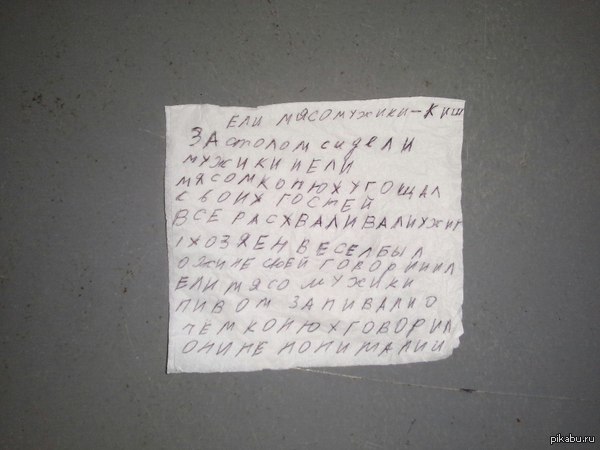 ЕЛИ МЯСО МУЖИКИ - КИШ
ЗА столом сидели
МУЖИКИ И ЕЛИ
МЯСОМ КОНЮХ УГОЩАЛ
СВОИХ ГОСТЕЙ
ВСЕ РАСХВАЛИВАЛИ УЖИН
И ХОЗЯЕН ВЕСЕЛ БЫЛ
О ЖИНЕ СВОЕЙ ГОВОРИИЛ
ЕЛИ МЯСО МУЖИКИ
ПИВОМ ЗАПИВАЛИ О
ЧЕМ КОНЮХ ГОВОРИЛ
ОНИ НЕ ПОНИМАЛИИ
pikabu.ru